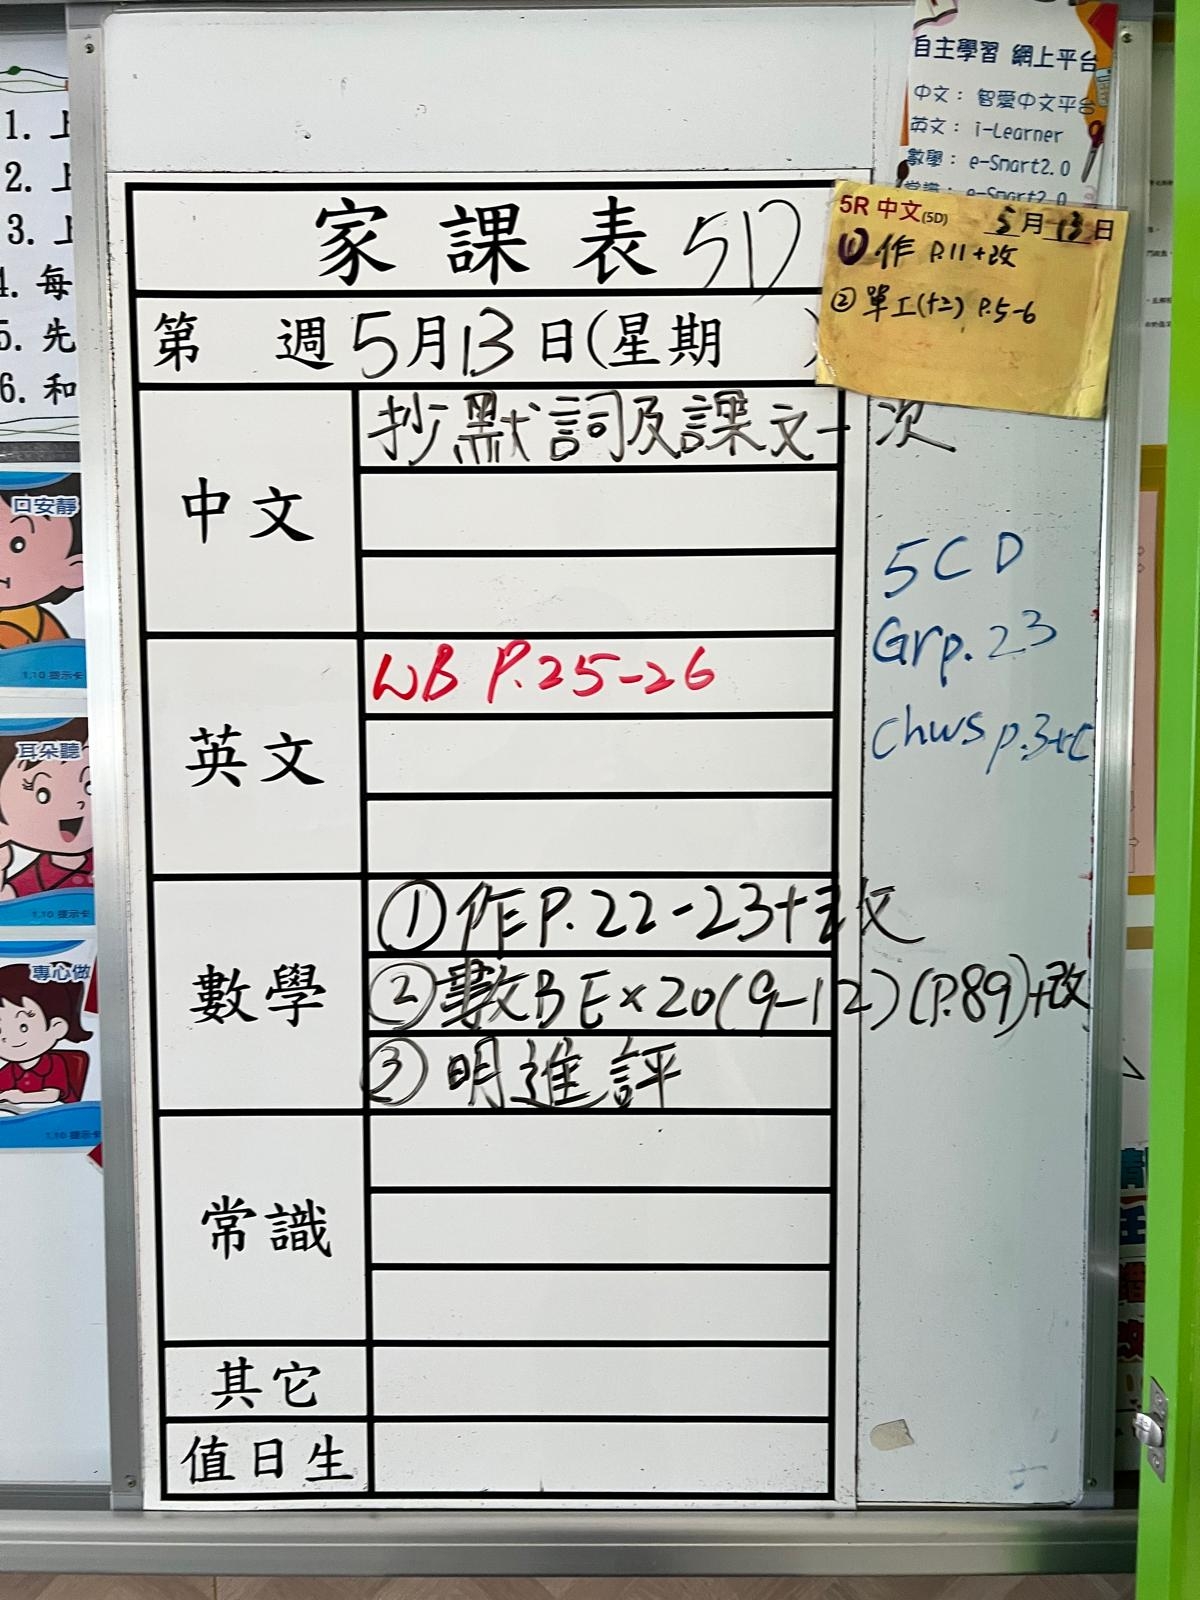 自主學習 網上平台
中文： 智愛中文平台
英文： i-Learner
數學： e-Smart2.0
常識： e-Smart2.0
5R 中文(5D) 5月13日
① 作 P.11+改
② 單工(十二) P.5-6
家課表 5D
第 週 5月13日(星期 )
中文
抄默詞及課文一次
英文
WB P.25-26
數學
①作P.22-23+改
②數BEx20(9-12)(P.89)+改
③明進評
常識
其它
值日生
5CD
Grp.23
Chws p.3+c
1. 上
2. 上
3. 上
4. 每
5. 先
6. 和
口安靜
1.10 提示卡
耳朵聽
1.10 提示卡
專心做
1.10 提示卡